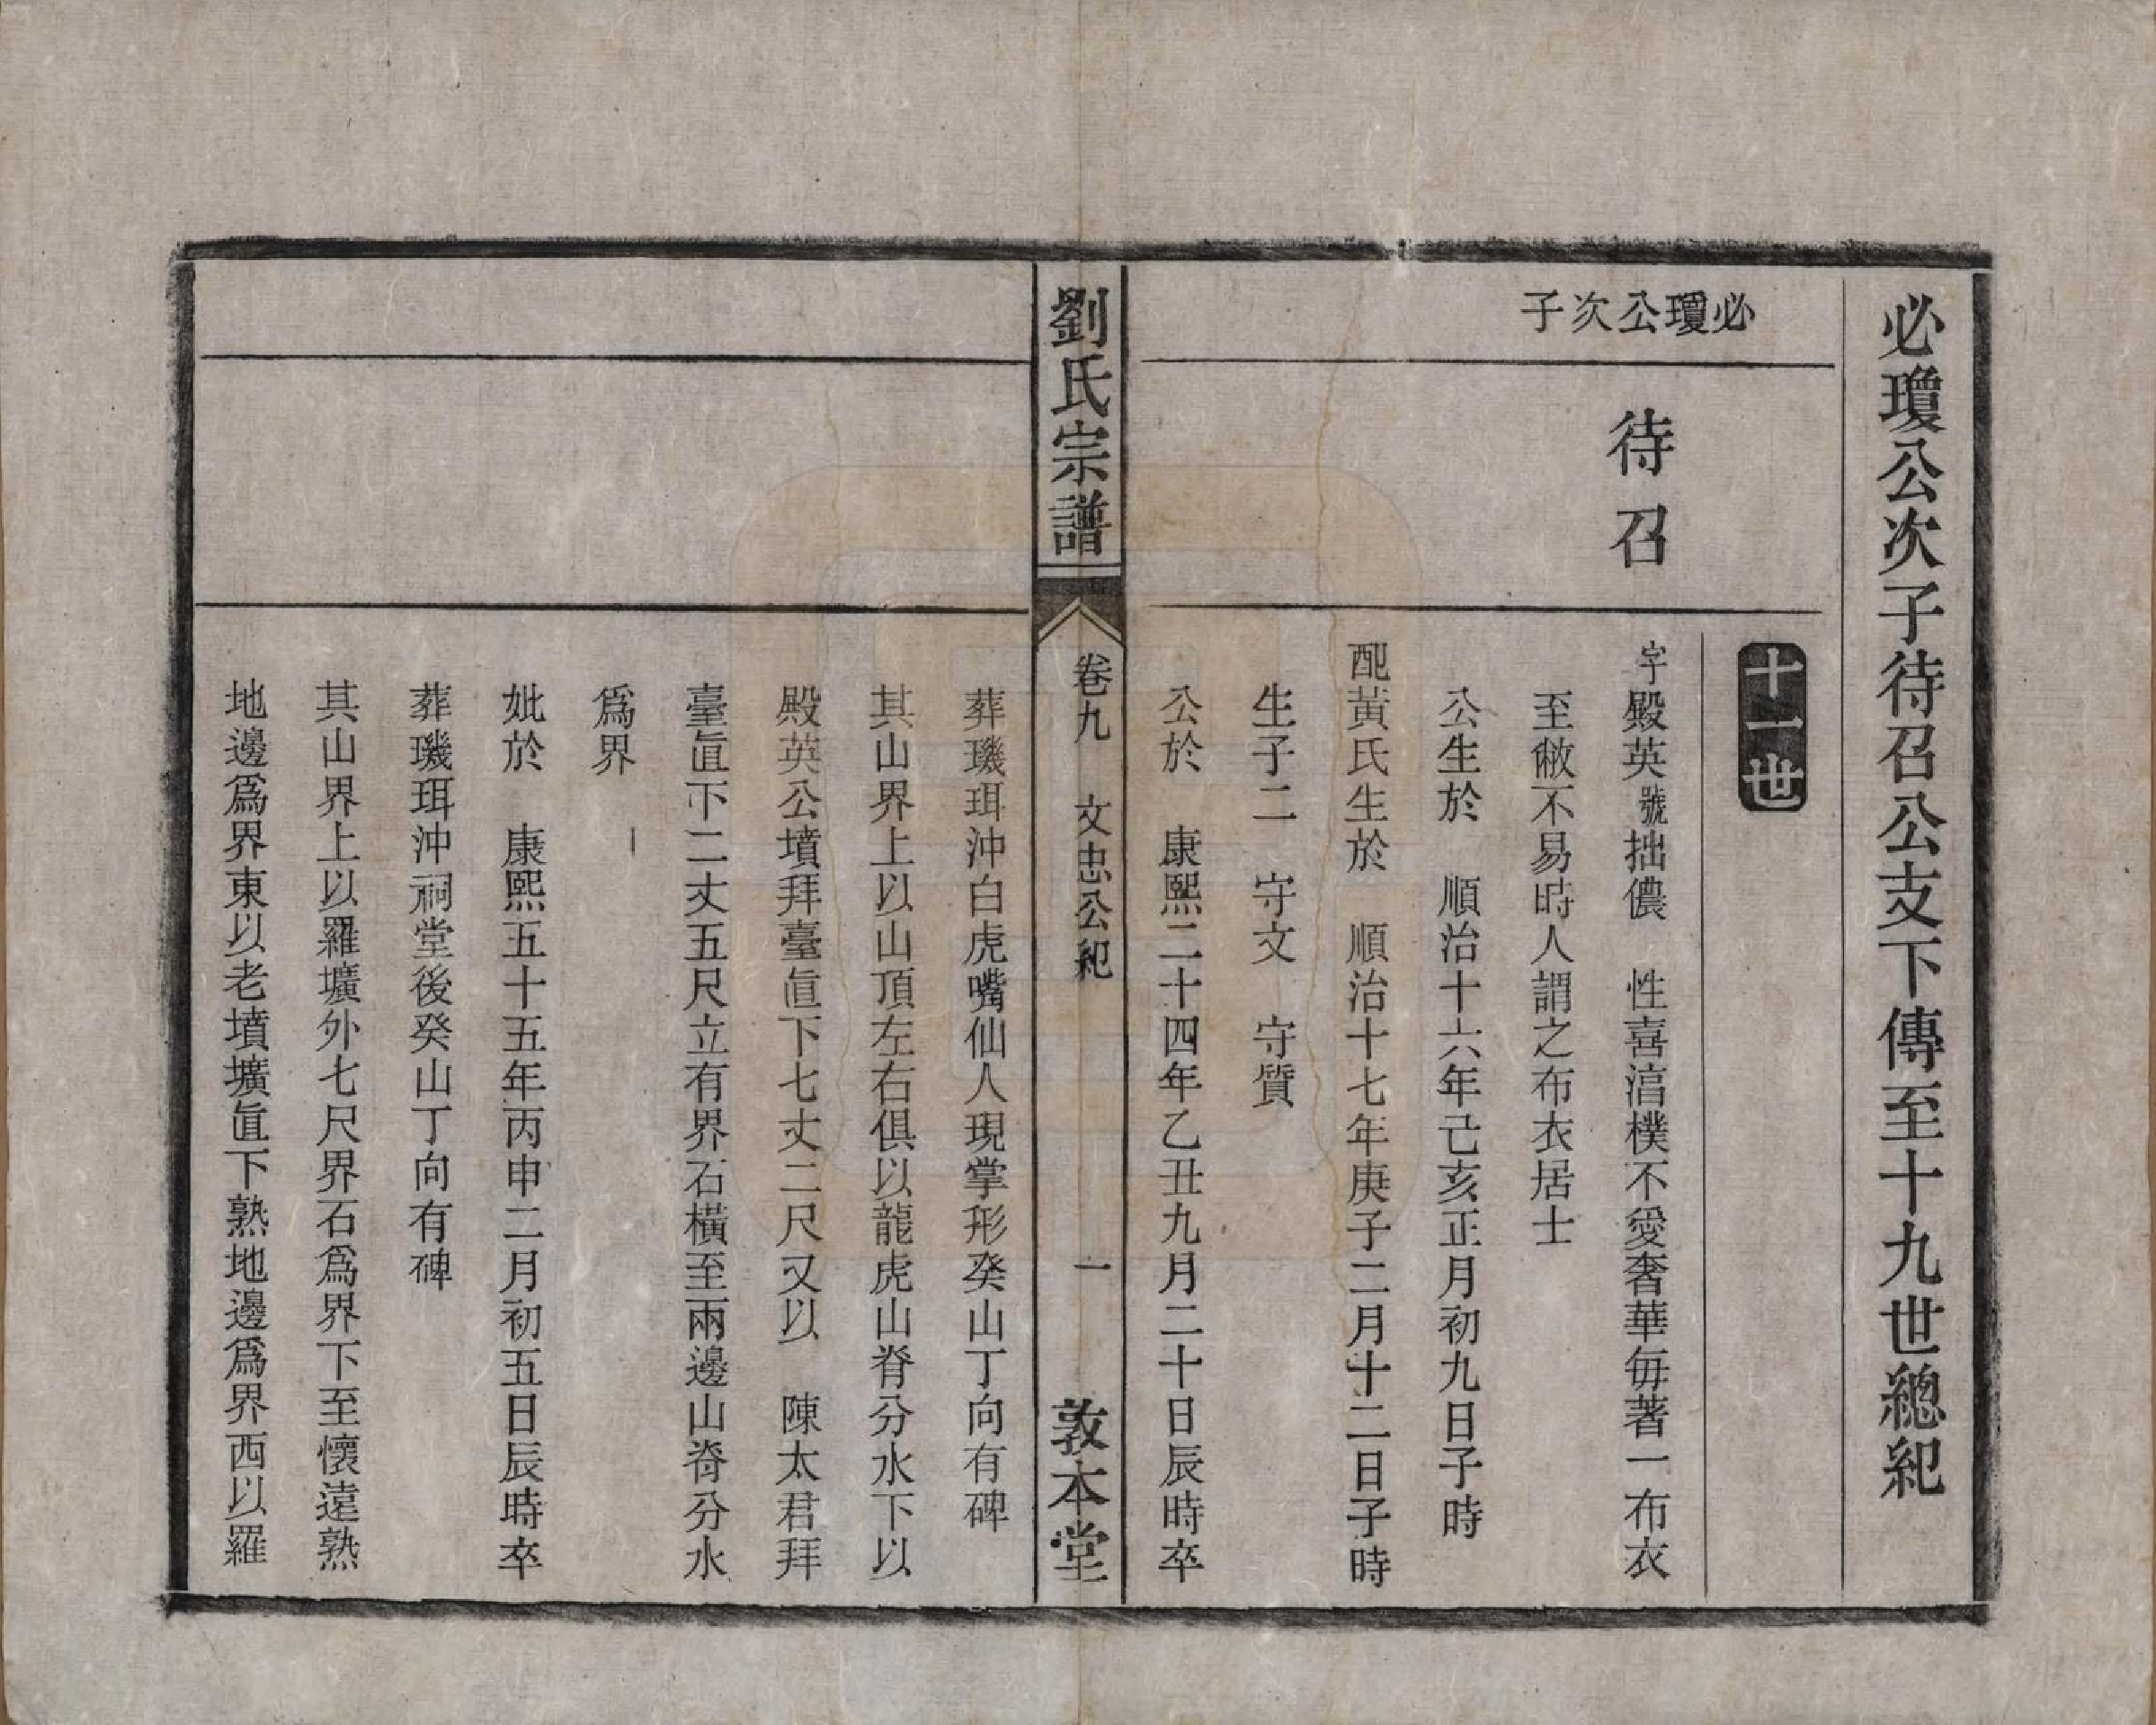 必瓊公次子待召公支下傳至十九世總紀
十一世
必瓊公次子
待召
字殿英號拙儂　性喜湻樸不愛奢華毎著一布衣
至敝不易時人謂之布衣居士
公生於　順治十六年己亥正月初九日子時
配黃氏生於　順治十七年庚子二月十二日子時
生子二　守文　守質
公於　康熙二十四年乙丑九月二十日辰時卒
劉氏宗譜　卷九　文忠公紀　一　敦本堂
葬璣珥沖白虎嘴仙人現掌形癸山丁向有碑
其山界上以山頂左右俱以龍虎山脊分水下以
殿英公墳拜臺直下七丈二尺又以　陳太君拜
臺直下二丈五尺立有界石橫至兩邊山脊分水
爲界
妣於　康熙五十五年丙申二月初五日辰時卒
葬璣珥沖祠堂後癸山丁向有碑
其山界上以羅壙外七尺界石爲界下至懷遠熟
地邊爲界東以老墳壙直下熟地邊爲界西以羅